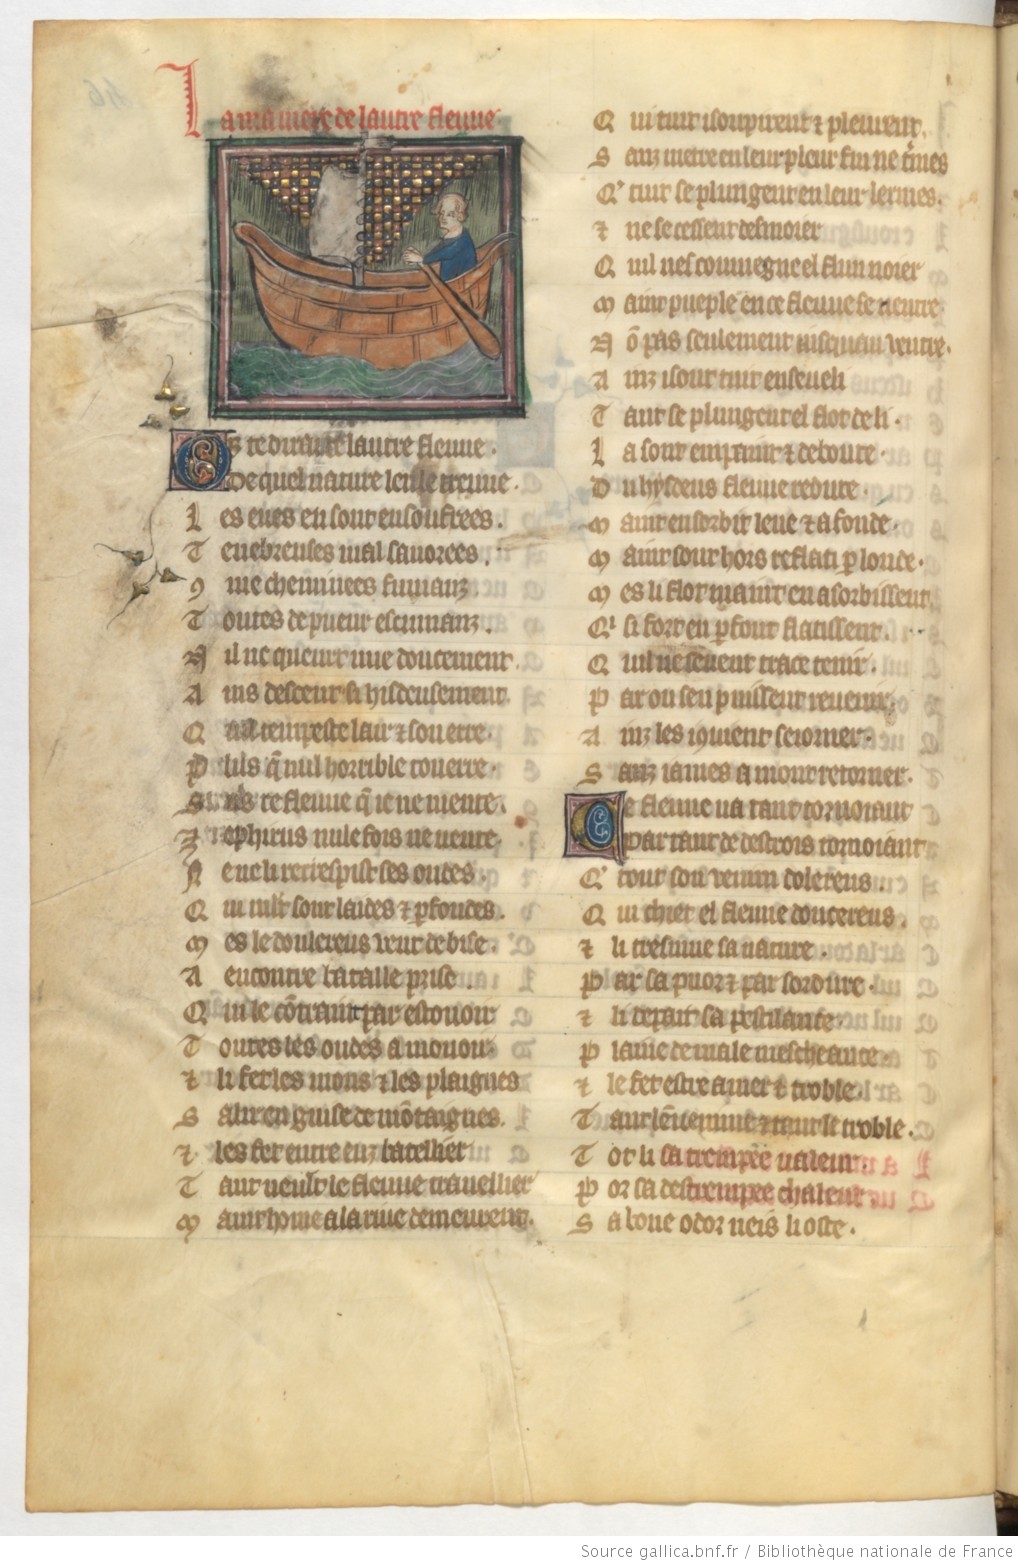 La maniere de lautre fleuue
Si te dirai de lautre fleuue
De quel nature len le treuue.
Les eues en sont ensoufrees.
Tenebreuses mal sauorees.
9me cheminees fumanz.
Toutes de pueur escumanz.
Nil ne queurt mie doucement.
Ains descent si hisdeusement.
Q tempeste lair z son erre.
Plus q̃ nul horrible touerre.
Sus ce fleuue q̃ ie ne mente.
Zephirus nule fois ne uente.
Ne ne li recrespist ses ondes.
Qui mlt sont laides z pfondes.
Mes le doulereus uent de bise.
A encontre bataille prise.
Qui le cõtraint par estouoir
Toutes les ondes a mouoir.
z li fet les mons z les plaignes
Salir en guise de mõtaignes.
z les fet entre euz bateillier
Tant ueult le fleuue trauellier
Maint home a la riue demeurent.
Qui tant i souspirent z pleurent.
Sanz metre en leur pleur fin ne t̃mes
Q' tuit se plungent en leur lermes.
z ne se cessent desmaier
Quil nes couuiegne el flun noier
Maint pueple en ce fleuue se uentre
Nõ pas seulement iusquau uentre.
Ainz i sont tuit enseueli
Tant se plungent el flot de li.
La sont empaint z deboute.
Du hysdeus fleuue redoute.
Maint en sorbit leue z afonde.
Maint sont hors reflati p londe.
Mes li flot maint en asorbissent.
Qi si fort en pfont flatissent.
Quil ne seuent trace tenir.
Par ou sen puissent reuenir.
Ainz les i 9uient seiorner.
Sanz iames amont retorner.
Ce fleuue ua tant tornoiant
Par tant de destrois tornoiant
Q' tout son uenim dolereus.
Qui chiet el fleuue doucereus.
z li tresmue sa nature.
Par sa puor z par sordure.
z li depart sa pestilance.
Plaine de male mescheance.
z le fet estre amer z troble.
Tant lẽuenime z tant le troble.
Tolt li sa trempee ualeur.
Por sa destrempee chaleur.
Sa bone odor neis li oste.
Source gallica.bnf.fr / Bibliothèque nationale de France